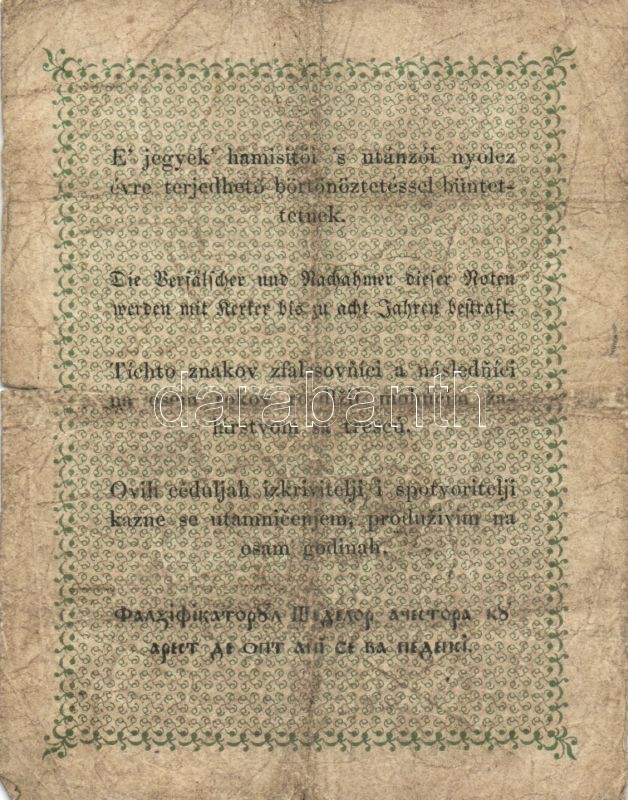 E' jegyek' hamisitói 's utánzói nyolcz
évre terjedhető börtönöztetéssel büntet-
tetnek.
Die Verfälscher und Nachahmer dieser Noten
werden mit Kerker bis zu acht Jahren bestraft.
Tíchto znakov zfalšovňíci a následňíci
na osem rokov
žá-
lárstvom sa trescú.
Ovih céduljah izkrivitelji i spotvoritelji
kazne se utamničenjem, produživim na
osam godinah.
Фалзіфікаторꙋл Шеделор ачестора кꙋ
арест де опт анї се ва педепсі.
darabanth